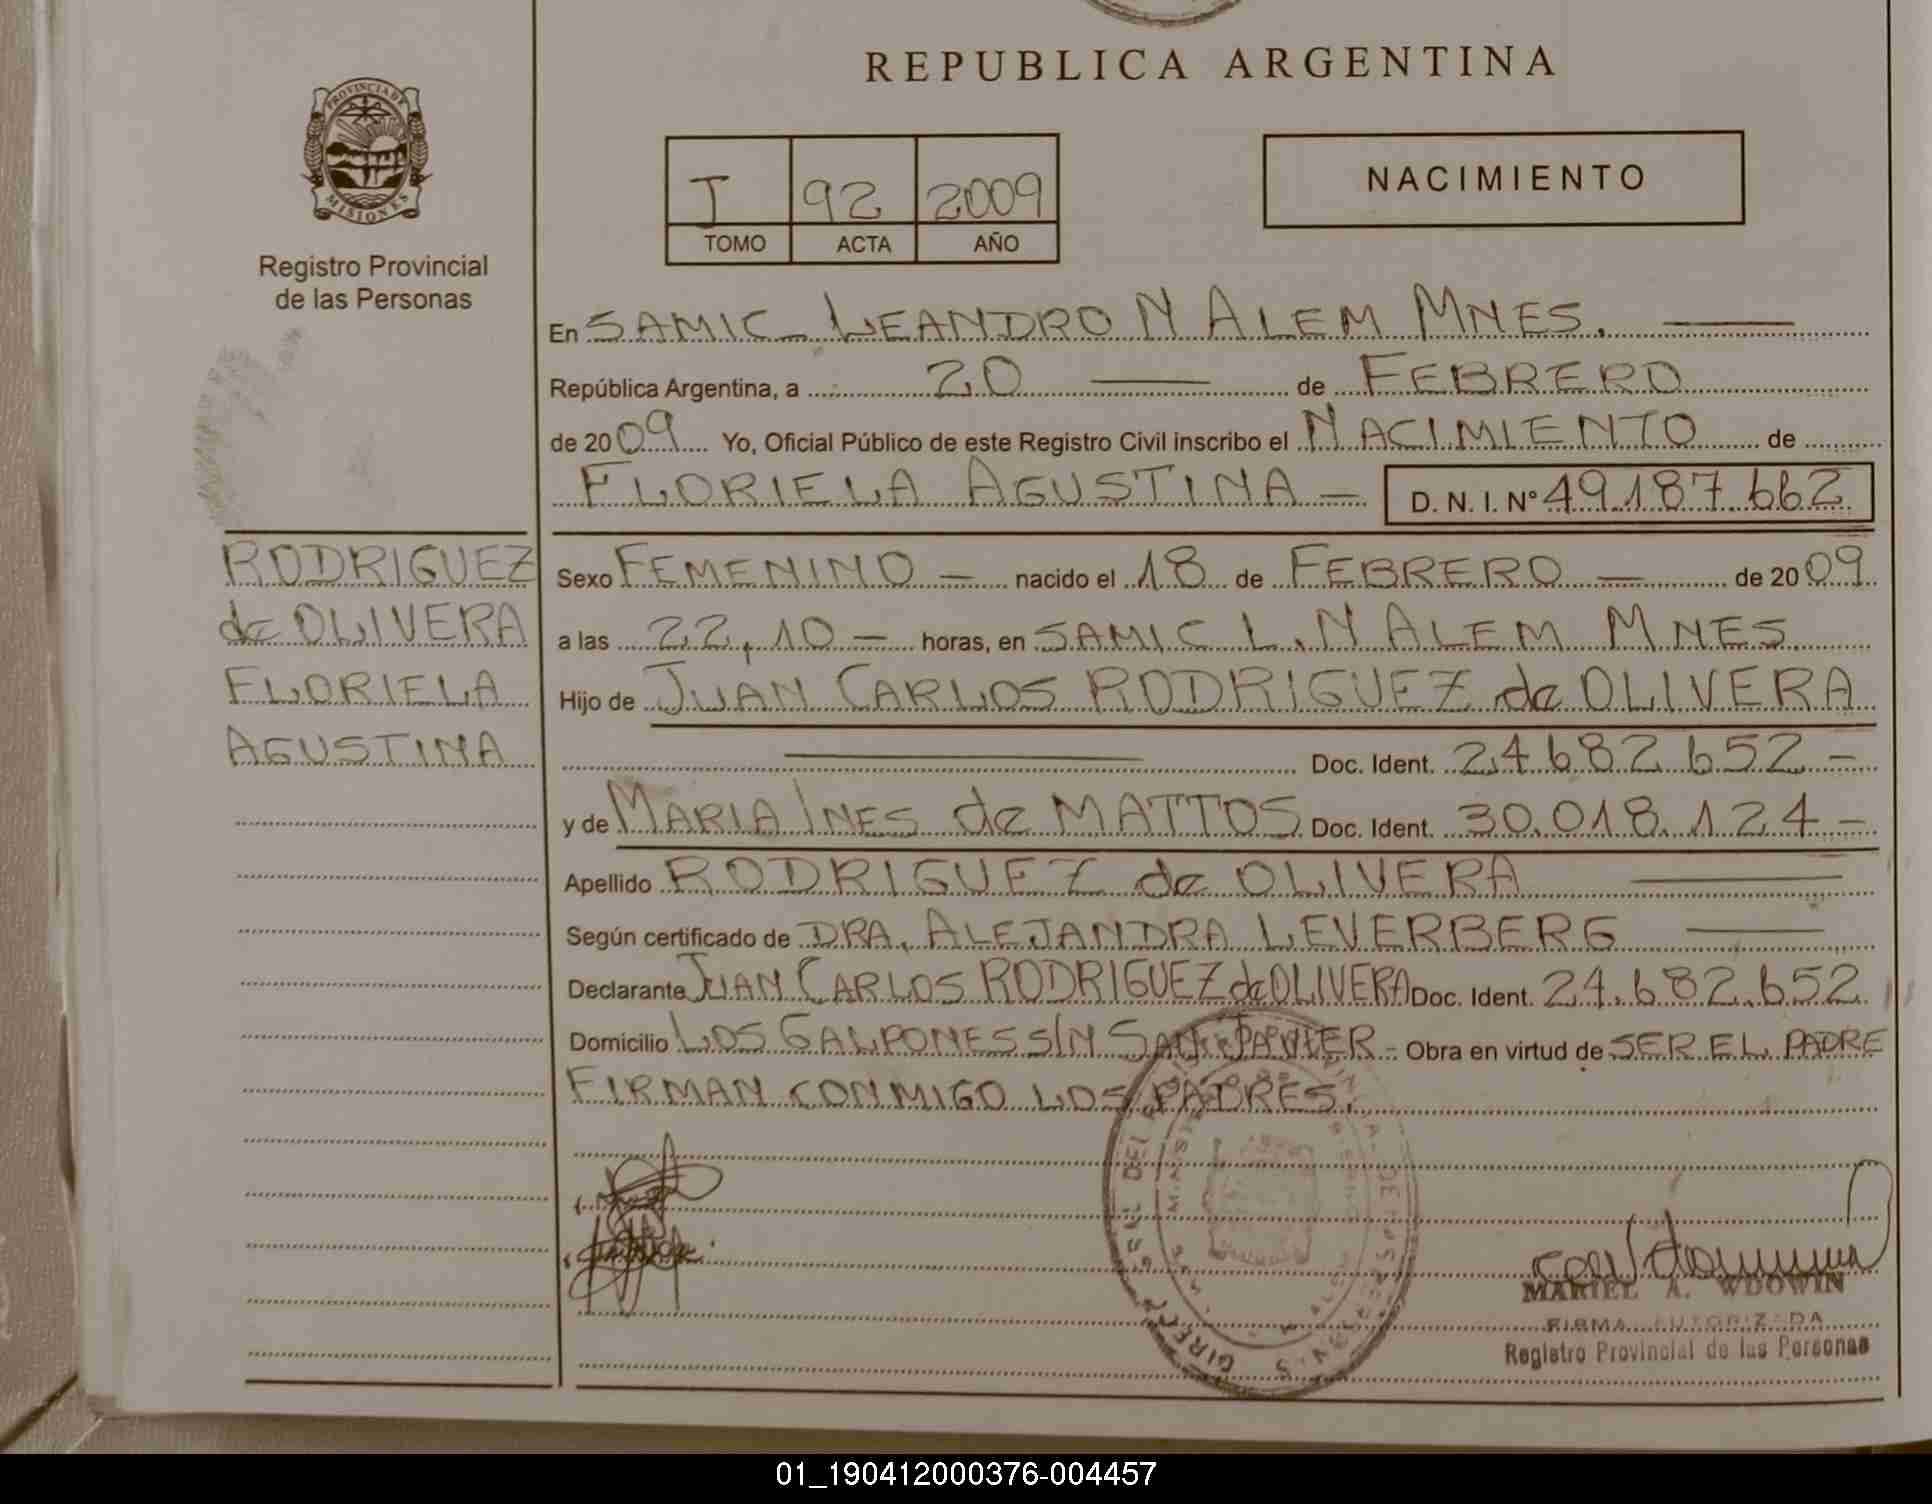 REPUBLICA ARGENTINA
PROVINCIA DE
MISIONES
Registro Provincial
de las Personas
T 92 2009
TOMO ACTA AÑO
NACIMIENTO
En SAMIC LEANDRO N ALEM MNES.
República Argentina, a 20 de FEBRERO
de 2009 Yo, Oficial Público de este Registro Civil inscribo el NACIMIENTO de
FLORIELA AGUSTINA — D. N. I. Nº 49.187.662
RODRIGUEZ
de OLIVERA
FLORIELA
AGUSTINA
Sexo FEMENINO — nacido el 18 de FEBRERO — de 2009
a las 22,10 — horas, en SAMIC L.N ALEM MNES
Hijo de JUAN CARLOS RODRIGUEZ de OLIVERA
Doc. Ident. 24.682.652 —
y de MARIA INES de MATTOS Doc. Ident. 30.018.124 —
Apellido RODRIGUEZ de OLIVERA
Según certificado de DRA. ALEJANDRA LEVERBERG
Declarante JUAN CARLOS RODRIGUEZ de OLIVERA Doc. Ident. 24.682.652
Domicilio LOS GALPONES S/N SAN JAVIER - Obra en virtud de SER EL PADRE
FIRMAN CONMIGO LOS PADRES.
MARIEL A. WDOWIN
FIRMA AUTORIZADA
Registro Provincial de las Personas
01_190412000376-004457